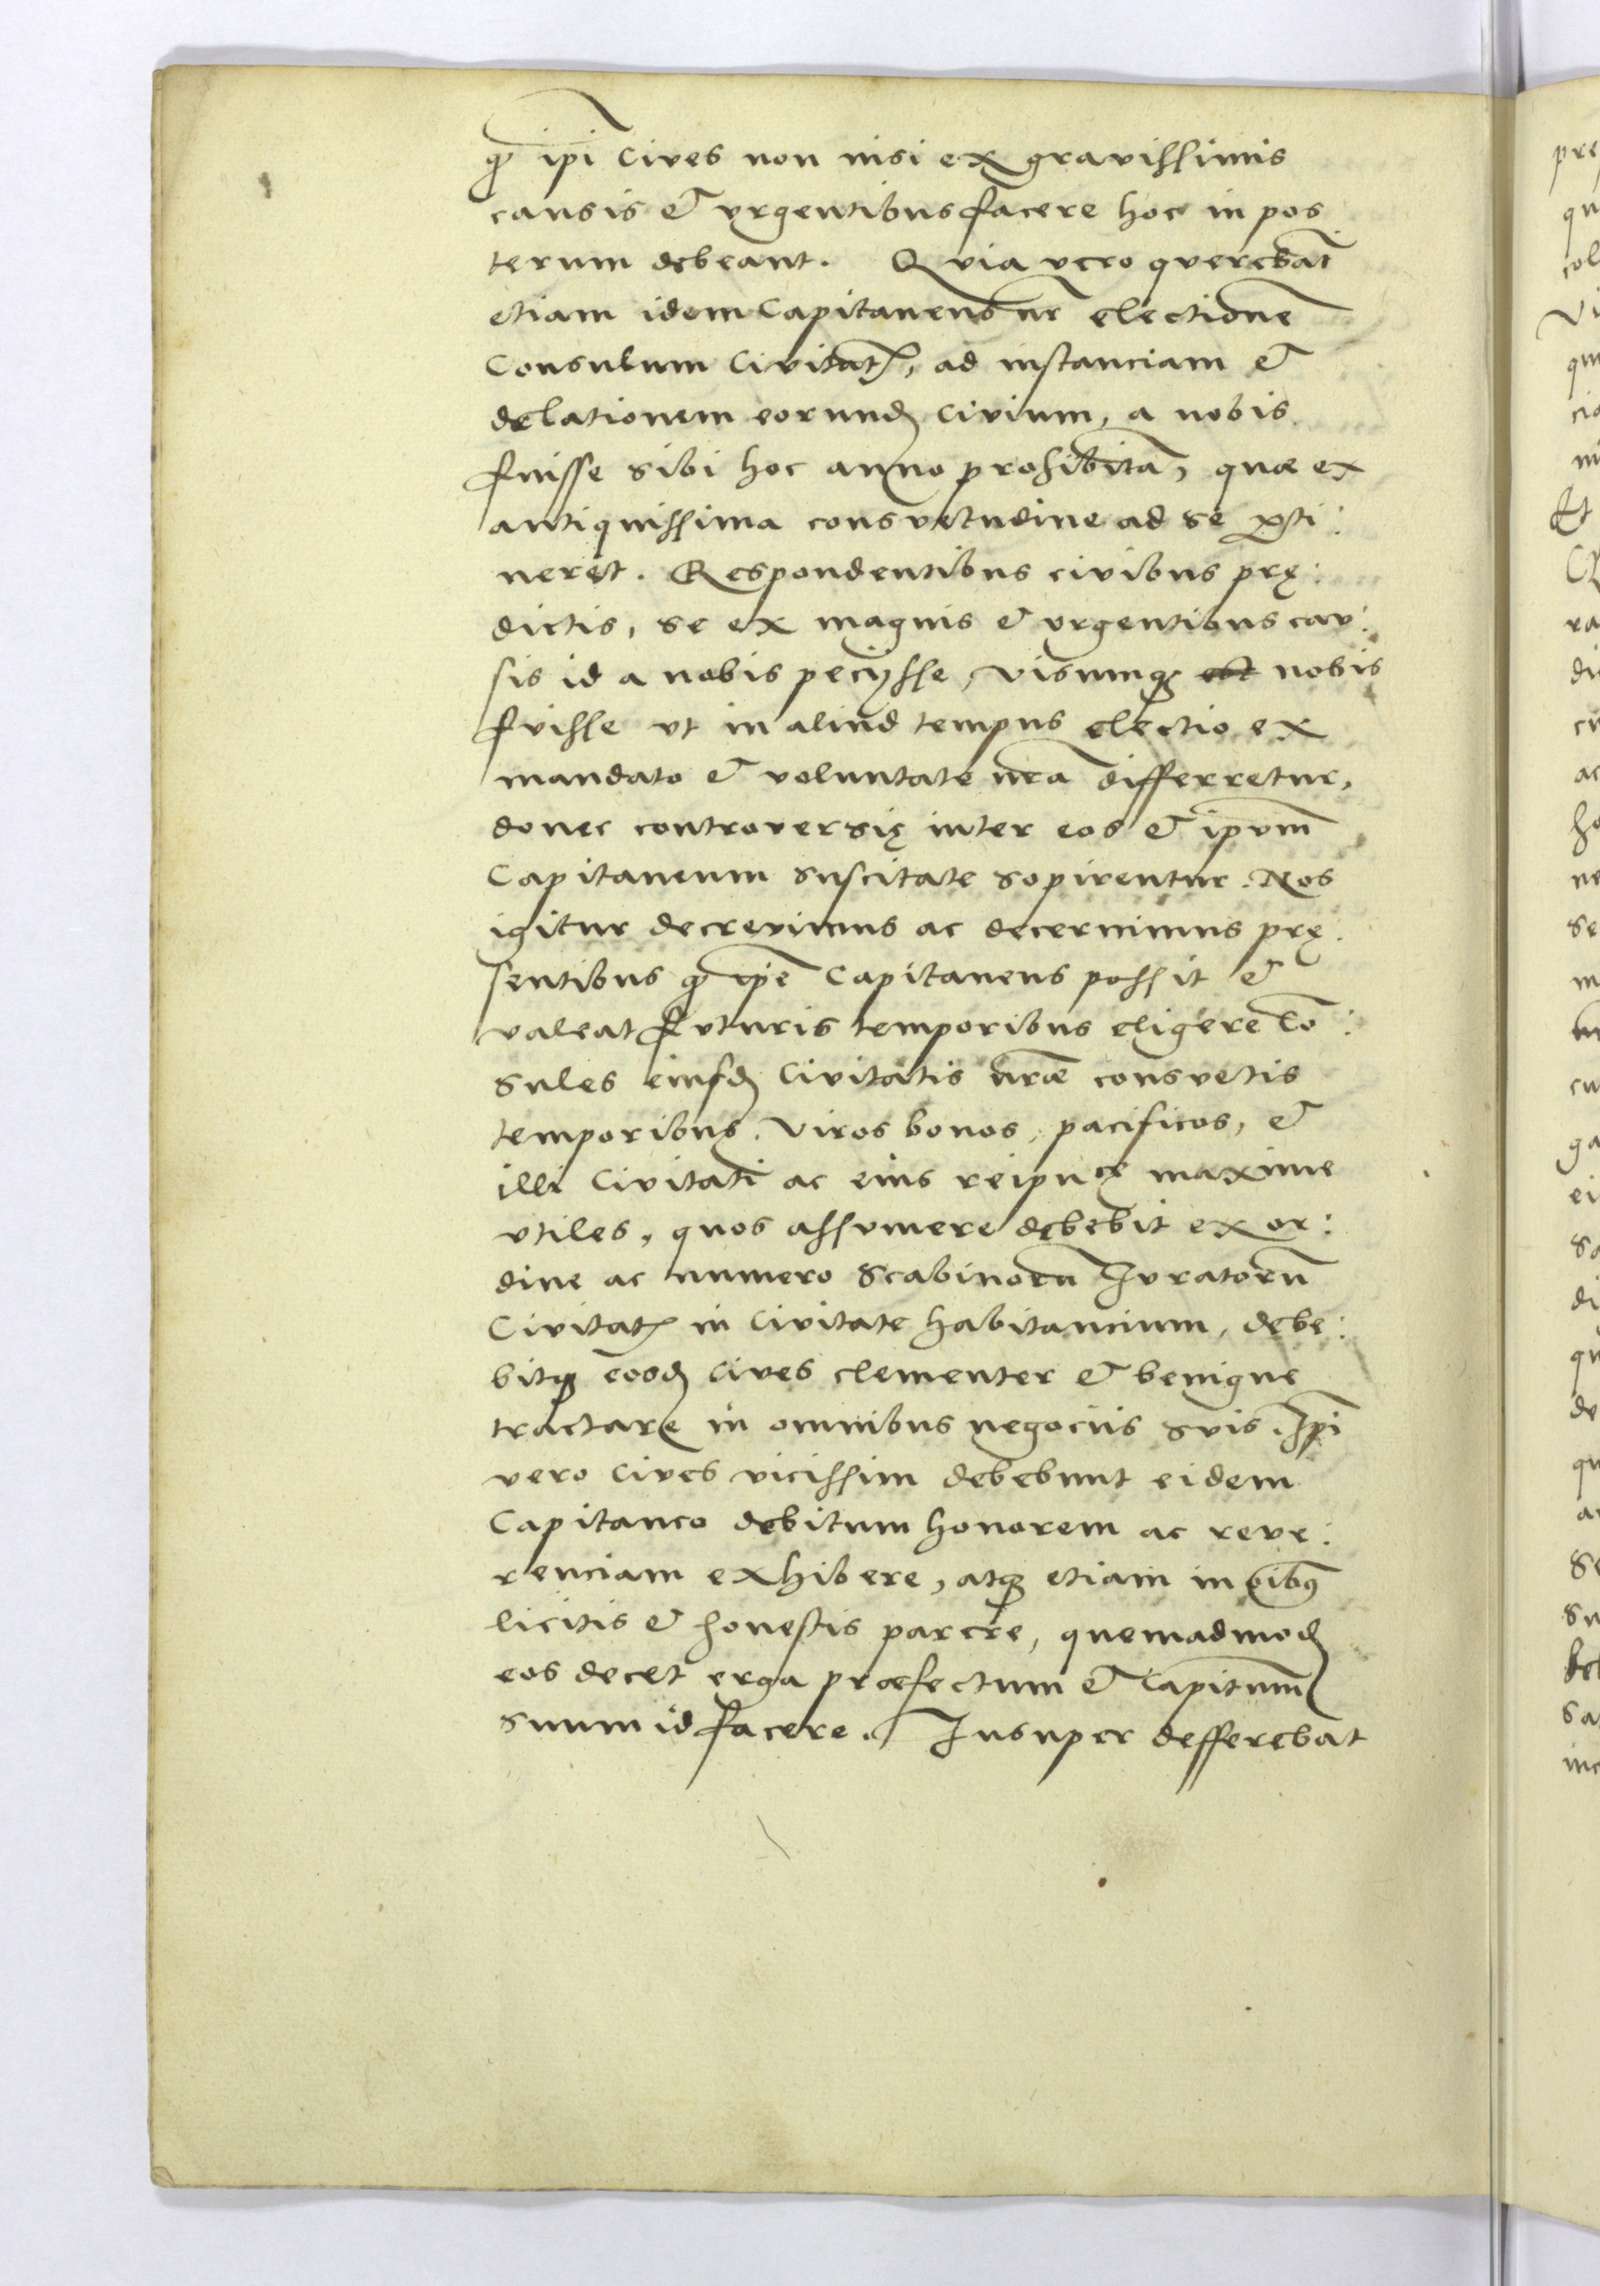 ꝙ ip̄i Cives non nisi ex gravissimis
causis et vrgentibus facere hoc in pos
terum debeant. Qvia vero qverebat̄
etiam idem Capitaneus nr̄ electionē
Consulum Civitatꝭ, ad instanciam et
delationem eorundꝫ Civium, a nobis
fuisse sibi hoc anno prohibitā, quæ ex
antiquissima consvetudine ad se ꝑti:
neret. Respondentibus civibus prę:
dictis, se ex magnis et vrgentibus cav:
sis id a nobis pecijsse, visumqꝫ est nobis
fvisse vt in aliud tempus electio ex
mandato et voluntate nr̄a differretur,
donec controversię inter eos et ipvm̄
Capitaneum suscitate sopirentur. Nos
igitur decrevimus ac decernimus prę:
sentibus ꝙ ip̄e Capitaneus possit et
valeat fvturis temporibus eligere Cō:
sules eiusdꝫ Civitatis nr̄æ consvetis
temporibus. Viros bonos, pacificos, et
illi Civitati ac eius reipu͞cę maxime
vtiles, quos assvmere debebit ex or:
dine ac numero Scabinorū Jvratorū
Civitatꝭ in Civitate habitancium, debe:
bitqꝫ eosdꝫ Cives clementer et benigne
tractare in omnibus negociis svis. Ip̄i
vero Cives vicissim debebunt eidem
Capitaneo debitum honorem ac reve:
renciam exhibere, atqꝫ etiam in oībꝰ
licitis et honestis parere, quemadmodꝫ
eos decet erga præfectum et Capitum̄
suum id facere. Insuper defferebat